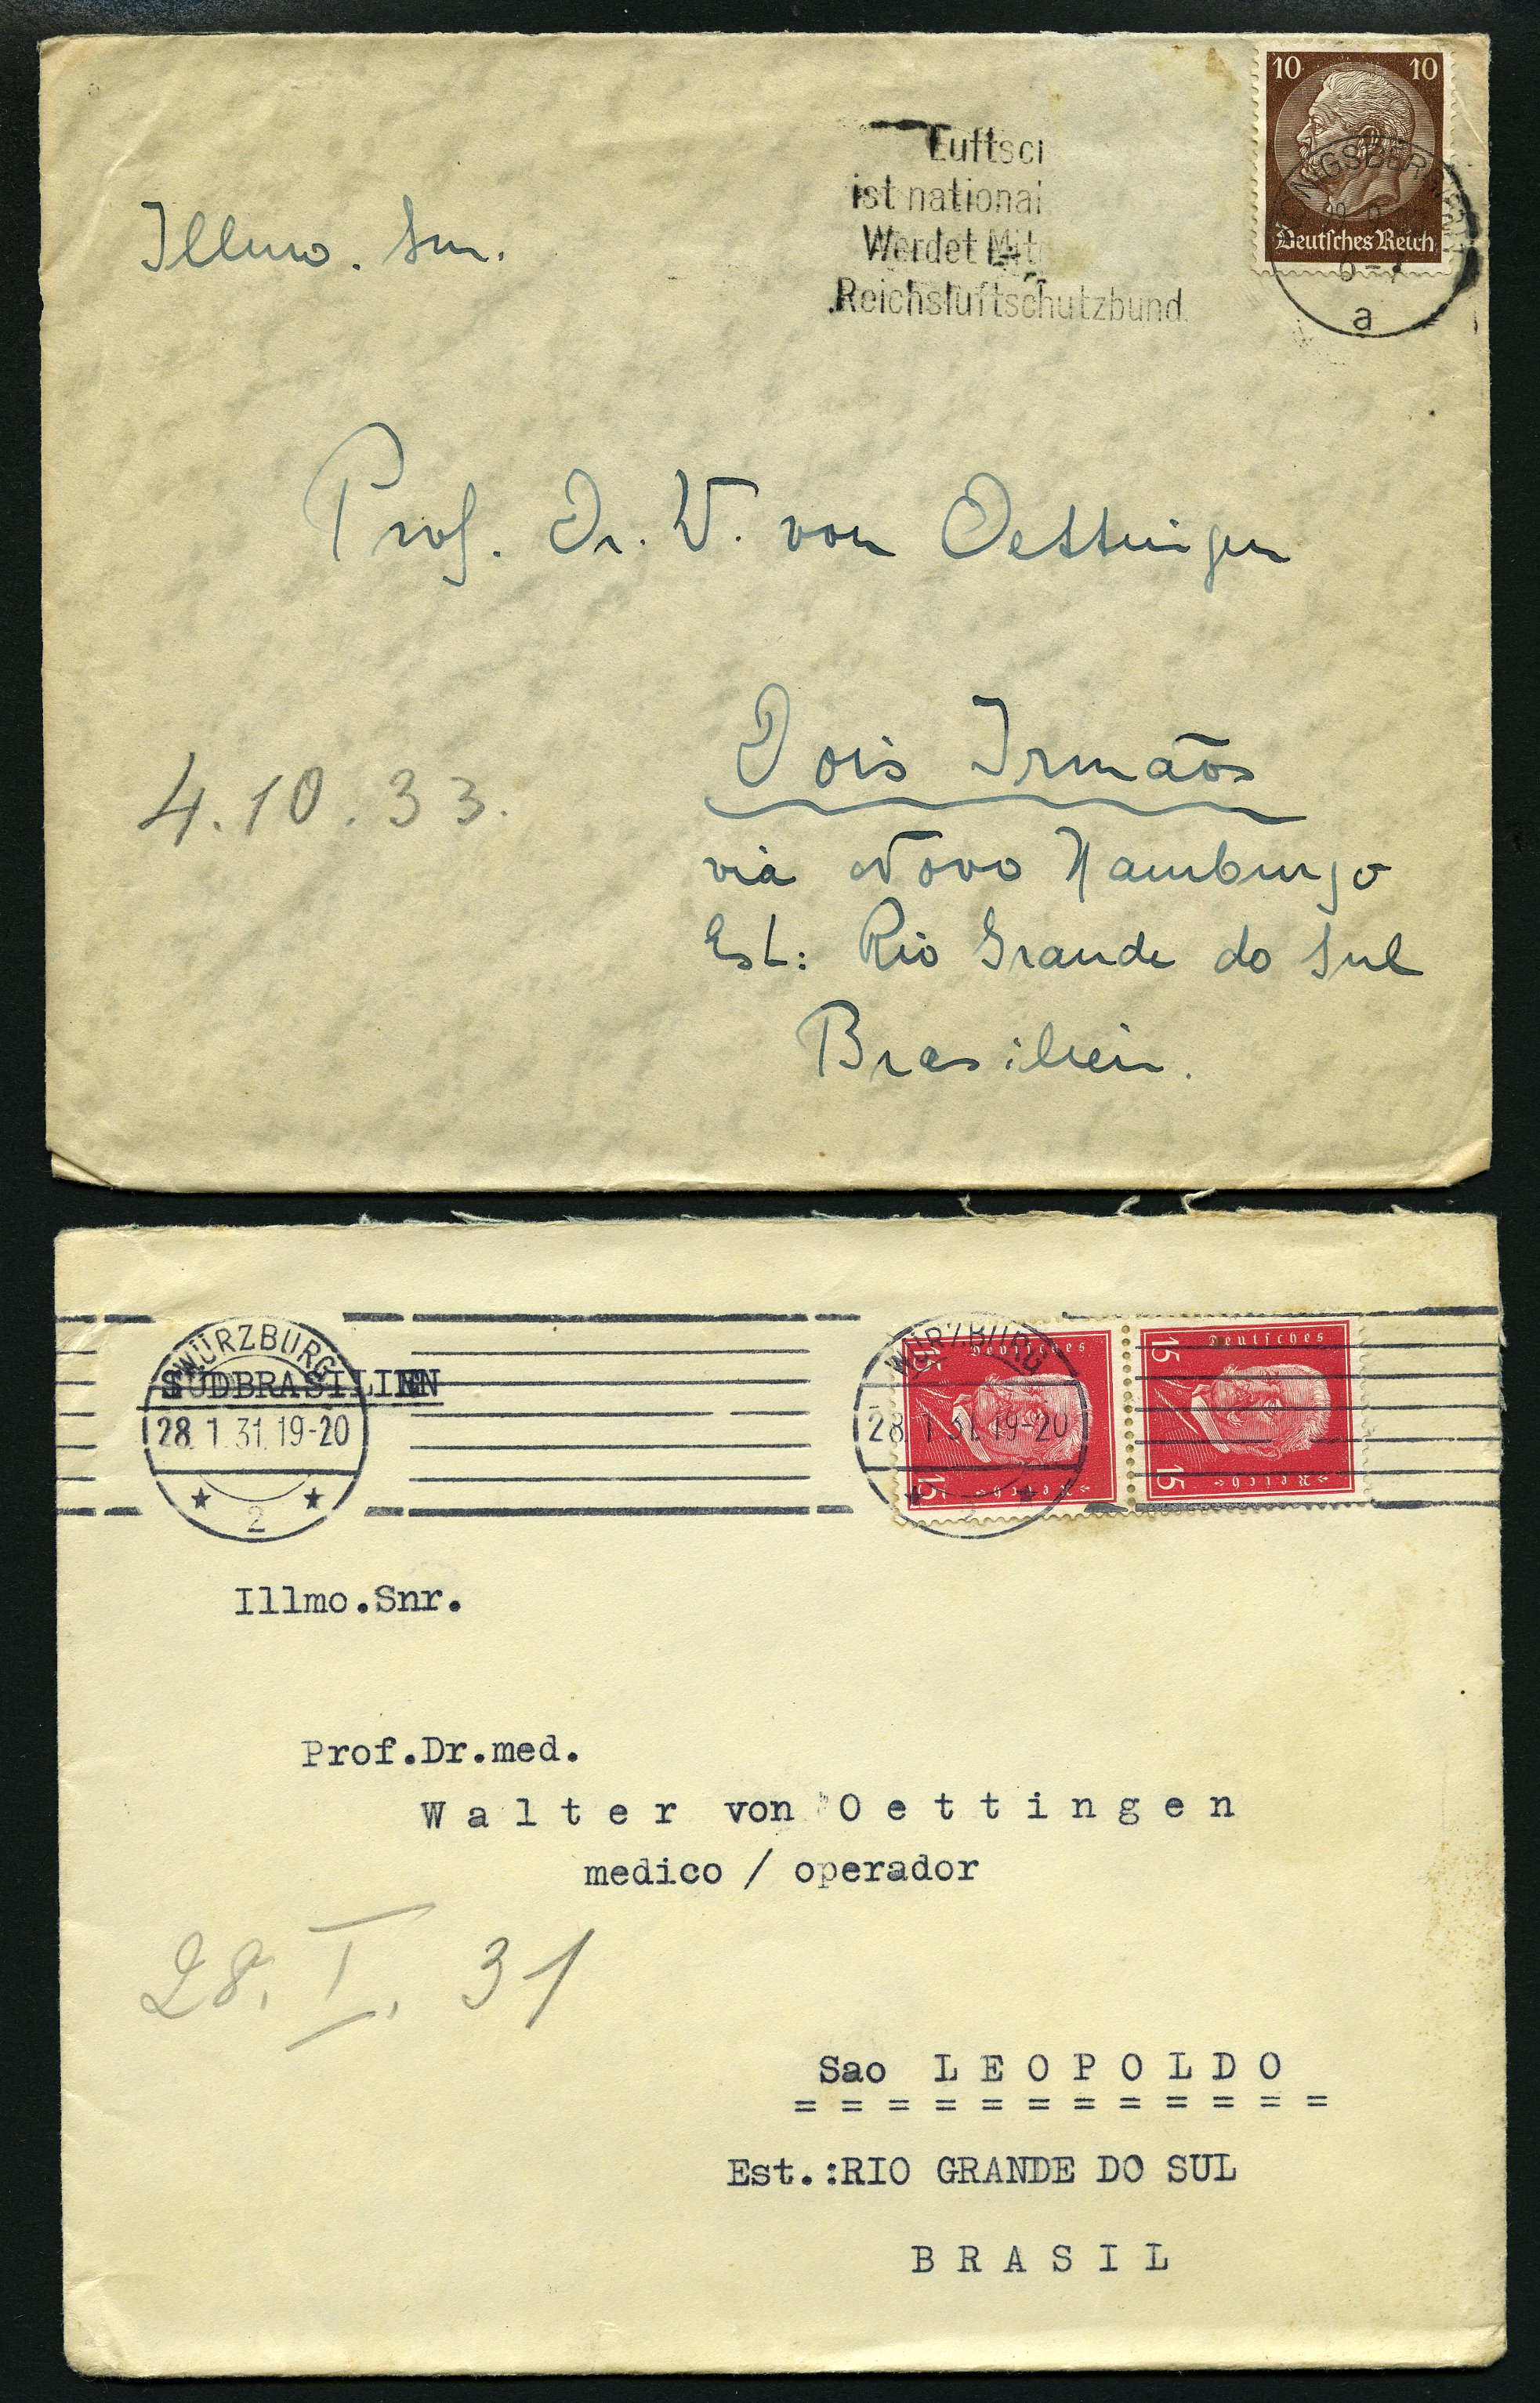 10 10
Deutsches Reich
Luftsc
ist national
Werdet Mit
Reichsluftschutzbund.
a
Illmo. Snr.
Prof. Dr. W. von Oettingen
4.10.33.
Dois Irmãos
via Novo Hamburgo
Est: Rio Grande do Sul
Brasilien.
WÜRZBURG
SÜDBRASILIEN
28.1.31.19-20
2
WÜRZBURG
28.1.31.19-20
15 Deutsches Reich 15
15 Deutsches Reich 15
Illmo.Snr.
Prof.Dr.med.
Walter von Oettingen
medico / operador
28. I. 31
Sao LEOPOLDO
============
Est.:RIO GRANDE DO SUL
BRASIL